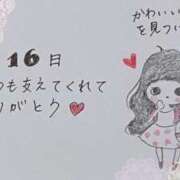 かわいい
を見つけ
16日
つも支えてくれて
りがとう